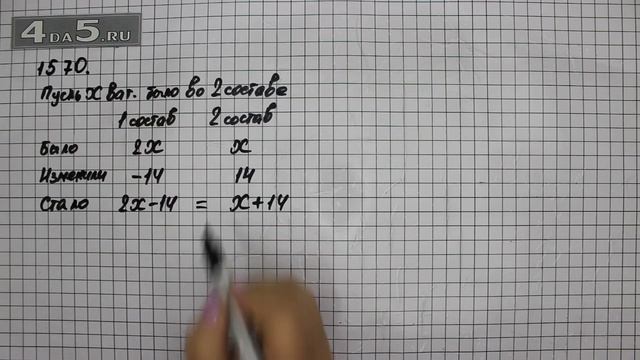 4DA5.RU
1570.
Пусть X ваг. было во 2 составе
1 состав 2 состав
Было 2X X
Изменили -14 14
Стало 2X-14 = X+14